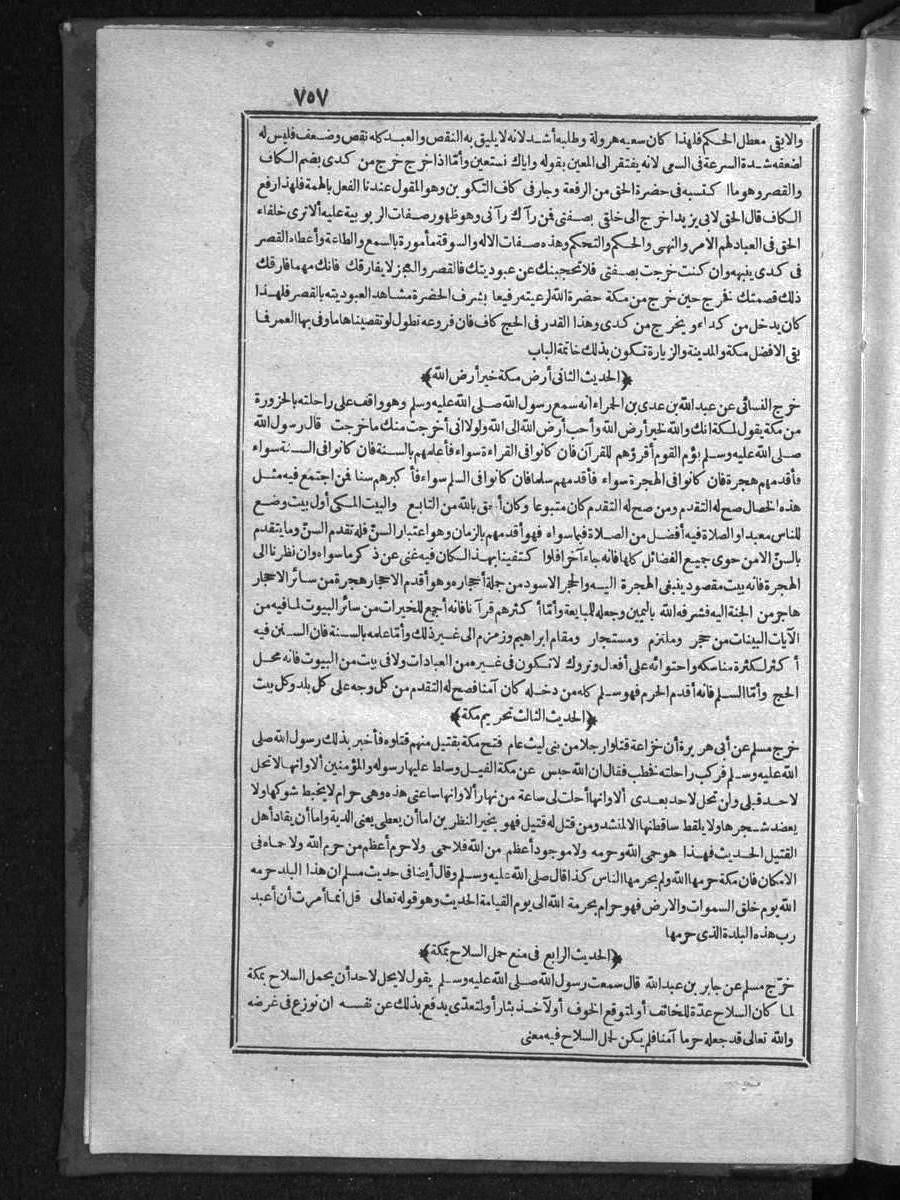 ٧٥٧
والابق معطل الحكم فلهذا كان سعيه هرولة وطلبه أشد لانه لا يليق به النقص والعبد كله نقص وضعف فليس له
لضعفه شدة السرعة فى السعى لانه يفتقر الى المعين بقوله واياك نستعين وأما اذا خرج خرج من كدى بضم الكاف
والقصر وهو ما اكتسبه فى حضرة الحق من الرفعة وجار فى كاف التكوين وهو المقول عندنا الفعل بالهمة فلهذا رفع
الكاف قال الحق لابى يزيد اخرج الى خلقى بصفتى فمن رآك رآنى وهو ظهور صفات الربوبية عليه ألا ترى خلفاء
الحق فى العباد لهم الامر والنهى والحكم والتحكم وهذه صفات الاله والسوقة مأمورة بالسمع والطاعة وأعطاه القصر
فى كدى ينبهه وان كنت خرجت بصفتى فلا تحجبنك عن عبوديتك فالقصر والعجز لا يفارقك فانك مهما فارقك
ذلك قصمتك فخرج حين خرج من مكة حضرة الله لرعيته رفيعا بشرف الحضرة مشاهدا لعبوديته بالقصر فلهذا
كان يدخل من كداء ويخرج من كدى وهذا القدر فى الحج كاف فان فروعه تطول لو تقصيناها ما وفى بها العمر فما
بقى الافضل مكة والمدينة والزيارة تكون بذلك خاتمة الباب
﴿الحديث الثانى أرض مكة خير أرض الله﴾
خرج النسائى عن عبد الله بن عدى بن الحمراء انه سمع رسول الله صلى الله عليه وسلم وهو واقف على راحلته بالحزورة
من مكة يقول لمكة انك والله لخير أرض الله وأحب أرض الله الى الله ولولا انى أخرجت منك ما خرجت قال رسول الله
صلى الله عليه وسلم يؤم القوم أقرؤهم للقرآن فان كانوا فى القراءة سواء فأعلمهم بالسنة فان كانوا فى السنة سواء
فأقدمهم هجرة فان كانوا فى الهجرة سواء فأقدمهم سلما فان كانوا فى السلم سواء فأكبرهم سنا فمن اجتمع فيه مثل
هذه الخصال صح له التقدم ومن صح له التقدم كان متبوعا وكان أحق بالله من التابع والبيت المكى أول بيت وضع
للناس معبدا والصلاة فيه أفضل من الصلاة فيما سواه فهو أقدمهم بالزمان وهو اعتبار السن فله تقدم السن وما يتقدم
بالسن الا من حوى جميع الفضائل كلها فانه جاء آخرا فلو اكتفينا بهذا لكان فيه غنى عن ذكر ما سواه وان نظرنا الى
الهجرة فانه بيت مقصود ينبغى الهجرة اليه والحجر الاسود من جملة أحجاره وهو أقدم الاحجار هجرة من سائر الاحجار
هاجر من الجنة اليه فشرفه الله باليمين وجعله للمبايعة وأما أكثرهم قرآنا فانه أجمع للخيرات من سائر البيوت لما فيه من
الآيات البينات من حجر وملتزم ومستجار ومقام ابراهيم وزمزم الى غير ذلك وأما علمه بالسنة فان السنن فيه
أكثر لكثرة مناسكه واحتوائه على أفعال وتروك لا تكون فى غيره من العبادات ولا فى بيت من البيوت فانه محل
الحج وأما السلم فانه أقدم الحرم فهو سلم كله من دخله كان آمنا فصح له التقدم من كل وجه على كل بلد وكل بيت
﴿الحديث الثالث تحريم مكة﴾
خرج مسلم عن أبى هريرة أن خزاعة قتلوا رجلا من بنى ليث عام فتح مكة بقتيل منهم قتلوه فأخبر بذلك رسول الله صلى
الله عليه وسلم فركب راحلته فخطب فقال ان الله حبس عن مكة الفيل وسلط عليها رسوله والمؤمنين ألا وانها لا تحل
لاحد قبلى ولن تحل لاحد بعدى ألا وانها أحلت لى ساعة من نهار ألا وانها ساعتى هذه وهى حرام لا يخبط شوكها ولا
يعضد شجرها ولا يلتقط ساقطتها الا لمنشد ومن قتل له قتيل فهو بخير النظرين اما أن يعطى يعنى الدية واما أن يقاد أهل
القتيل الحديث فهذا هو حمى الله وحرمه ولا موجود أعظم من الله فلا حمى ولا حرم أعظم من حرم الله ولا حماه فى
الامكان فان مكة حرمها الله ولم يحرمها الناس كذا قال صلى الله عليه وسلم وقال أيضا فى حديث مسلم ان هذا البلد حرمه
الله يوم خلق السموات والارض فهو حرام بحرمة الله الى يوم القيامة الحديث وهو قوله تعالى قل انما أمرت أن أعبد
رب هذه البلدة الذى حرمها
﴿الحديث الرابع فى منع حمل السلاح بمكة﴾
خرج مسلم عن جابر بن عبد الله قال سمعت رسول الله صلى الله عليه وسلم يقول لا يحل لاحد أن يحمل السلاح بمكة
لما كان السلاح عدة للخائف أو لمتوقع الخوف أو لآخذ بثار أو لمتعدى يدفع بذلك عن نفسه ان نوزع فى غرضه
والله تعالى قد جعله حرما آمنا فلم يكن لحمل السلاح فيه معنى